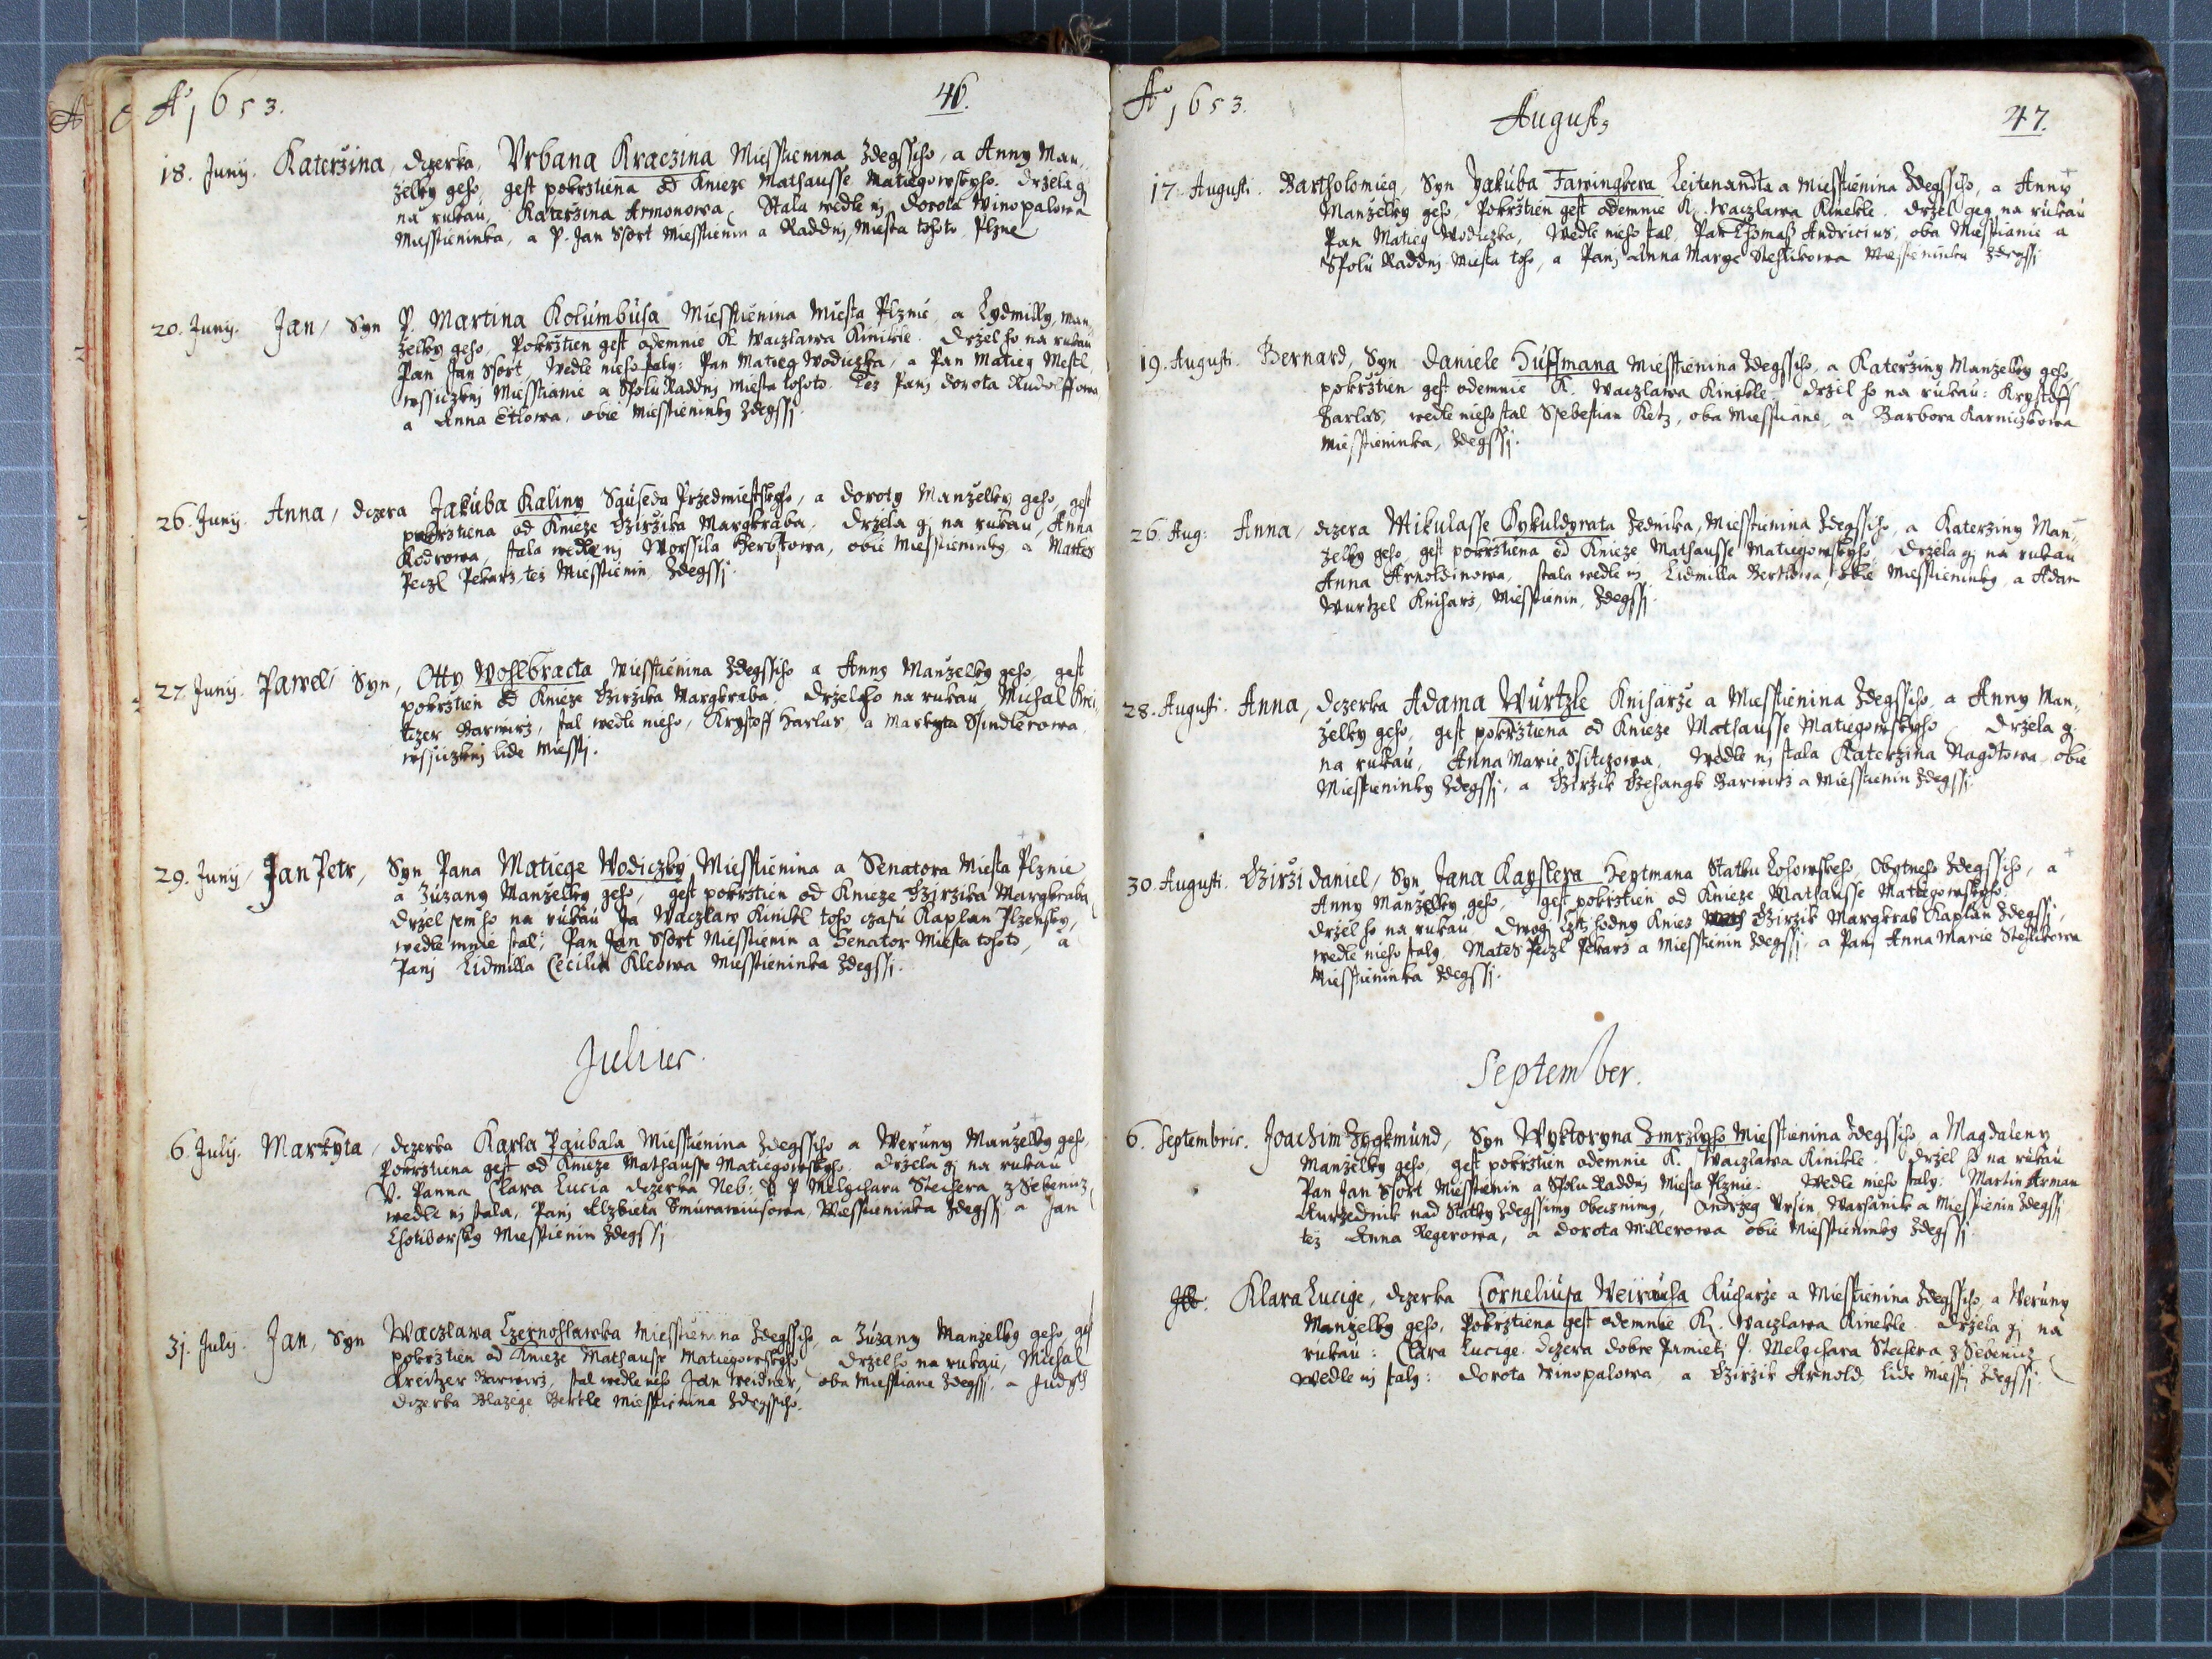 Aº 1653.
46.
18. Junij. Katerzina, dczerka, Vrbana Kraczina Miesstienina Zdegssiho, a Anny Man„
želky geho, gest pokrztiena od Knieze Mathausse Matiegowskyho. Držela gj
na rukau, Katerzina Armonowa, Stala wedle nj Dorota Winopalowa
Miesstieninka, a P. Jan Ssort Miesstienin a Raddnj, Miesta tohoto Plzne
20. Junij. Jan, Syn P. Martina Kolumbusa Miesstienina Miesta Plznie, a Lydmilly, Man„
želky geho, Pokrztien gest odemnie K. Waczlawa Kinikle. Držel ho na rukau
Pan Jan Ssort, Wedle nieho staly: Pan Matieg Wodiczka, a Pan Matieg Mestl,
wssiczknj Miesstianie a Spolu Raddnj Miesta tohoto. Tez Panj Dorota Rudolffowa
a Anna Etlowa, obie Miesstieninky Zdegssj.
26. Junij. Anna, dczera Jakuba Kaliny Sauseda Przedmiestskyho, a Doroty Manželky geho, gest
pokrztiena od Knieze Gzirzika Margkraba. Držela gj na rukau, Anna
Kodrowa, stala wedle nj Worssila Herbstowa, obie Miesstieninky, a Mattes
Peczl Pekarz, tez Miesstienin Zdegssj.
27. Junij. Pawel, Syn, Otty Wohlbracta Miesstienina Zdegssiho a Anny Manželky geho, gest
pokrztien od Knieze Gzirzika Margkraba. Držel ho na rukau, Michal Krei„
tzer Barwirz, stal wedle nieho, Krystoff Harlas, a Markyta Ssindlerowa,
wssiczknj lide Miesstj.
29. Junij, Jan Petr, Syn Pana Matiege Wodiczky Miesstienina a Senatora Miesta Plznie
a Zuzany Manželky geho, gest pokrztien od Knieze Gzirzika Margkraba,
Držel sem ho na rukau Ja Waczlaw Kinikl toho czasu Kaplan Plzensky,
wedle mnie stal, Pan Jan Ssort Miesstienin a Senator Miesta tohoto, a
Panj Lidmilla Cecilia Kleowa Miesstieninka Zdegssj.
Julius.
6. Julij. Markyta, dczerka Karla Paubala Miesstienina Zdegssiho a Weruny Manželky geho,
Pokrztiena gest od Knieze Mathausse Matiegowskyho. Držela gj na rukau
V. Panna Clara Lucia dczerka Neb: P Melychara Steihera z Sebenicz,
wedle nj stala, Panj Elzbieta Smurawiusowa, Miesstieninka Zdegssj, a Jan
Chotiborsky Miesstienin Zdegssj
31. July. Jan, Syn Waczlawa Czernohlawka Miesstienina Zdegssiho, a Zuzany Manželky geho, gest
pokrztien od Knieze Mathausse Matiegowskyho. Držel ho na rukau, Michal
Kreitzer Barwirz, stal wedle nieho Jan Weidner, oba Miesstiane Zdegssj, a Judyth
dczerka Blazege Bertle Miesstienina Zdegssiho.
Aº 1653.
Augusts
47.
17. Augusti. Bartholomieg, Syn Jakuba Fawingkera Leitenandta a Miesstienina Zdegssiho, a Anny
Manželky geho, Pokrztien gest odemnie K. Waczlawa Kinikle. Držel geg na rukau
Pan Matieg Wodiczka, Wedle nieho stal, Pan Thomass Andricius, oba Miesstianie a
Spolu Raddnj Miesta toho, a Panj Anna Marye Stehlikowa Miesstieninka Zdegssj
19. Augusti. Bernard, Syn Daniele Huffmana Miesstienina Zdegssiho, a Katerziny Manželky geho,
pokrztien gest odemnie K. Waczlawa Kinikle. Držel ho na rukau: Krystoff
Harlas, wedle nieho stal Ssebestian Ketz, oba Miesstiane, a Barbora Karniczkowa
Miesstieninka, Zdegssj.
26. Aug: Anna, dczera Mikulasse Kykuldyrata Zednika, Miesstienina Zdegssiho, a Katerziny Man„
želky geho, gest pokrztiena od Knieze Mathausse Matiegowskyho. Držela gj na rukau
Anna Arnoldinowa, stala wedle nj Lidmilla Bertlowa, obie Miesstieninky, a Adam
Wurtzel Knihars, Miesstienin, Zdegssj.
28. Augusti. Anna, Dczerka Adama Wurtzle Kniharze a Miesstienina Zdegssiho, a Anny Man„
želky geho, gest pokrztiena od Knieze Mathausse Matiegowskyho. Držela gj
na rukau, Anna Marie Ssitczowa. Wedle nj stala Katerzina Nagdtowa, obie
Miesstieninky Zdegssj, a Gzirzik Gzehangk Barwirz a Miesstienin Zdegssj.
30. Augusti. Gzirzi Daniel, Syn Jana Kaystera Heytmana Statku Lohowskeho, Obytneho Zdegssiho, a
Anny Manželky geho, gest pokrztien od Knieze Mathausse Matiegowskyho.
Držel ho na rukau, Dwog Cztihodny Kniez Gzirzik Margkrab Kaplan Zdegssj,
wedle nieho staly, Mates Peczl Pekarz a Miesstienin Zdegssj, a Panj Anna Marie Stehlikowa
Miesstieninka Zdegssj.
September.
6. Septembris. Joachim Sygkmund, Syn Wyktoryna Zmrzlyho Miesstienina Zdegssiho, a Magdaleny
Manželky geho, gest pokrztien odemnie K. Waczlawa Kinikle. Držel ho na rukau
Pan Jan Ssort Miesstienin a Spolu Raddnj Miesta Plznie. Wedle nieho staly: Martin Arman
Aurzednik nad Statky Zdegssimy Obecznimy, Ondrzeg Vrsin, Warhanik a Miesstienin Zdegssj
tez Anna Regerowa, a Dorota Millerowa obie Miesstieninky Zdegssj.
Klara Lucige, dczerka Corneliusa Weirausa Kucharze a Miesstienina Zdegssiho, a Weruny
Manželky geho, Pokrztiena gest odemnie K. Waczlawa Kinikle. Držela gj na
rukau: Clara Lucige dczera dobre Pamieti P. Melychara Steihera z Sebenicz
Wedle nj staly: Dorota Winopalowa, a Gzirzik Arnold, lide Miesstj Zdegssj.